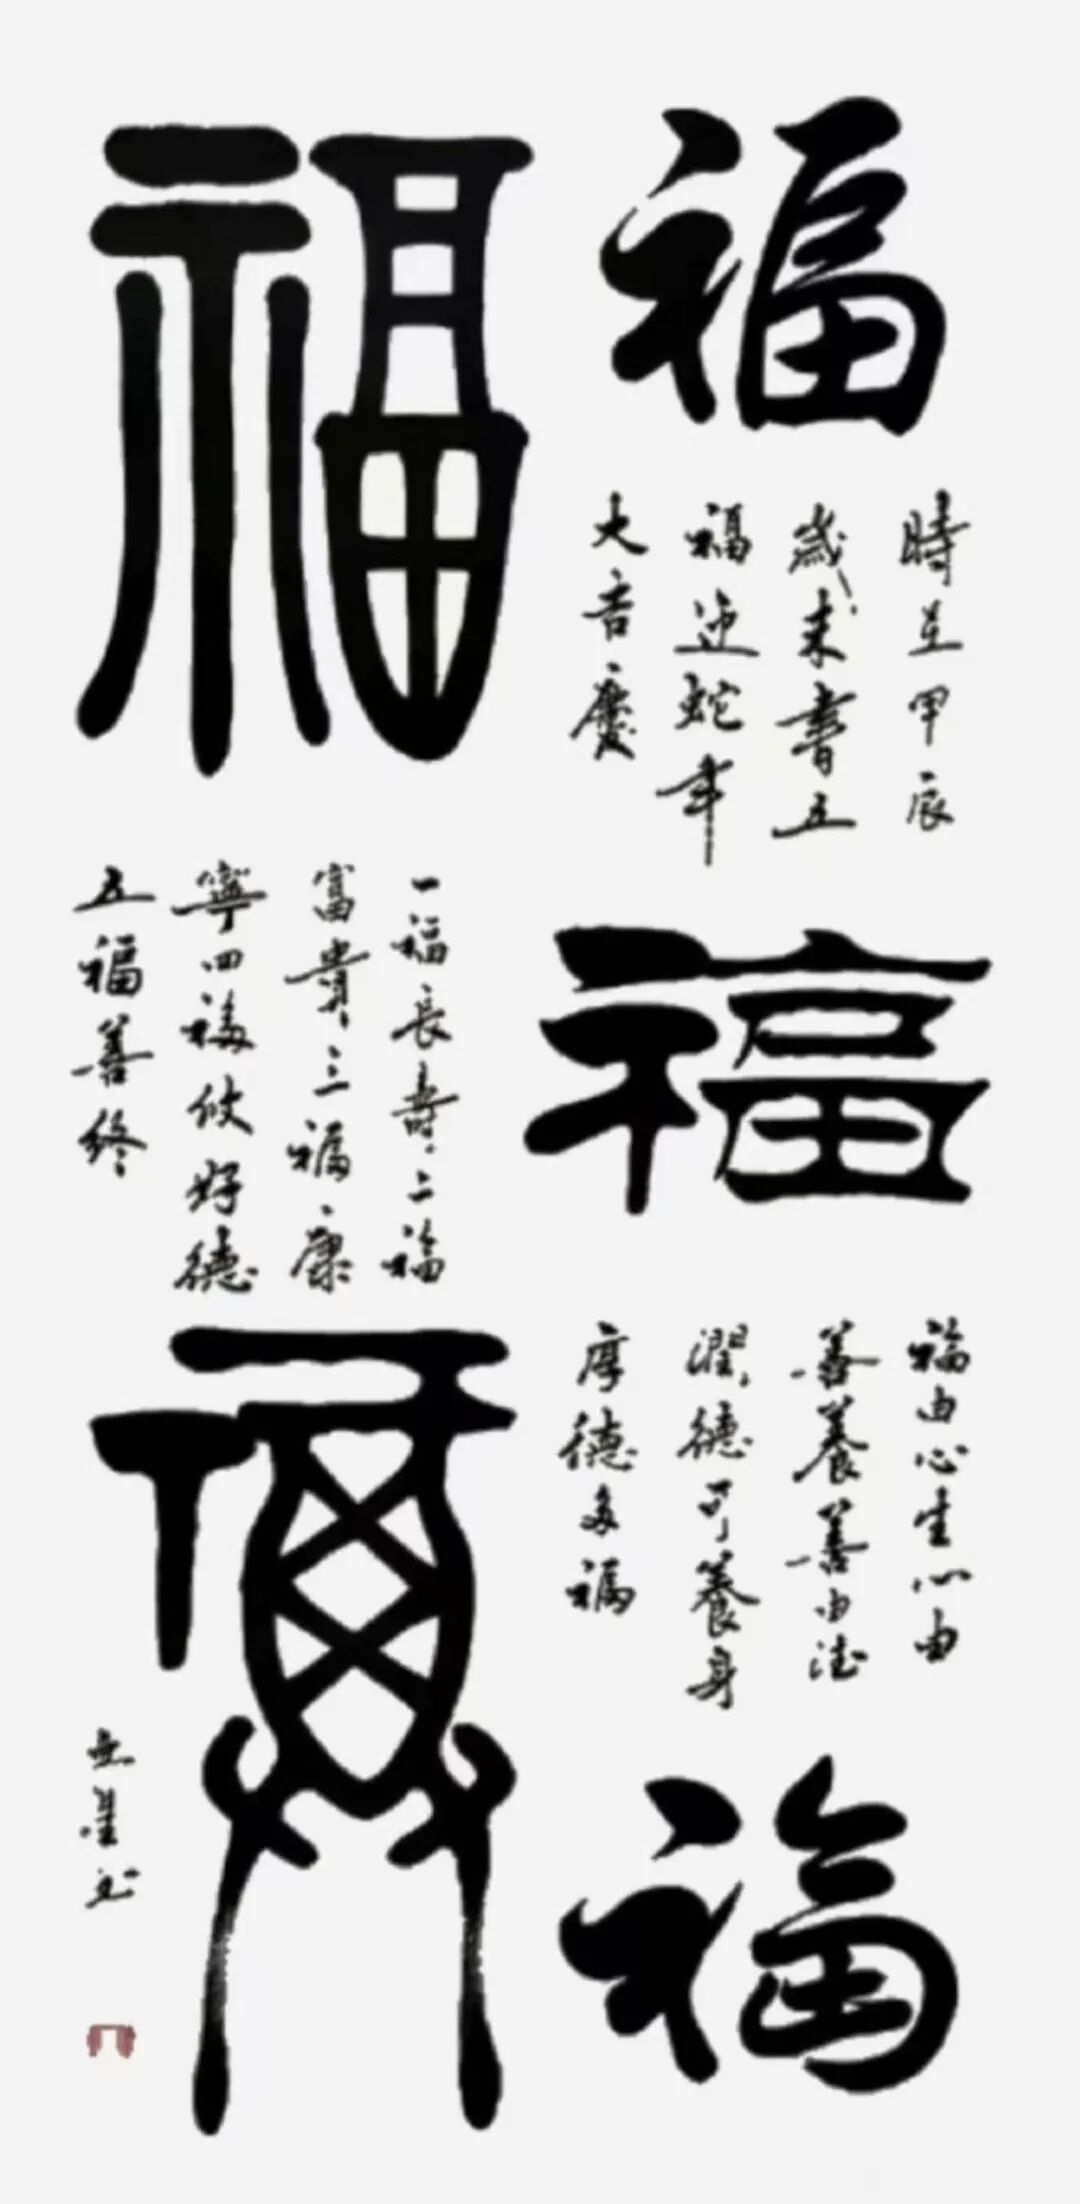 福
時在甲辰
歲末書五
福迎蛇年
大吉慶
福
福由心生心由
善養善由德
潤德可養身
厚德多福
福
福
一福長壽二福
富貴三福康
寧四福攸好德
五福善終
福